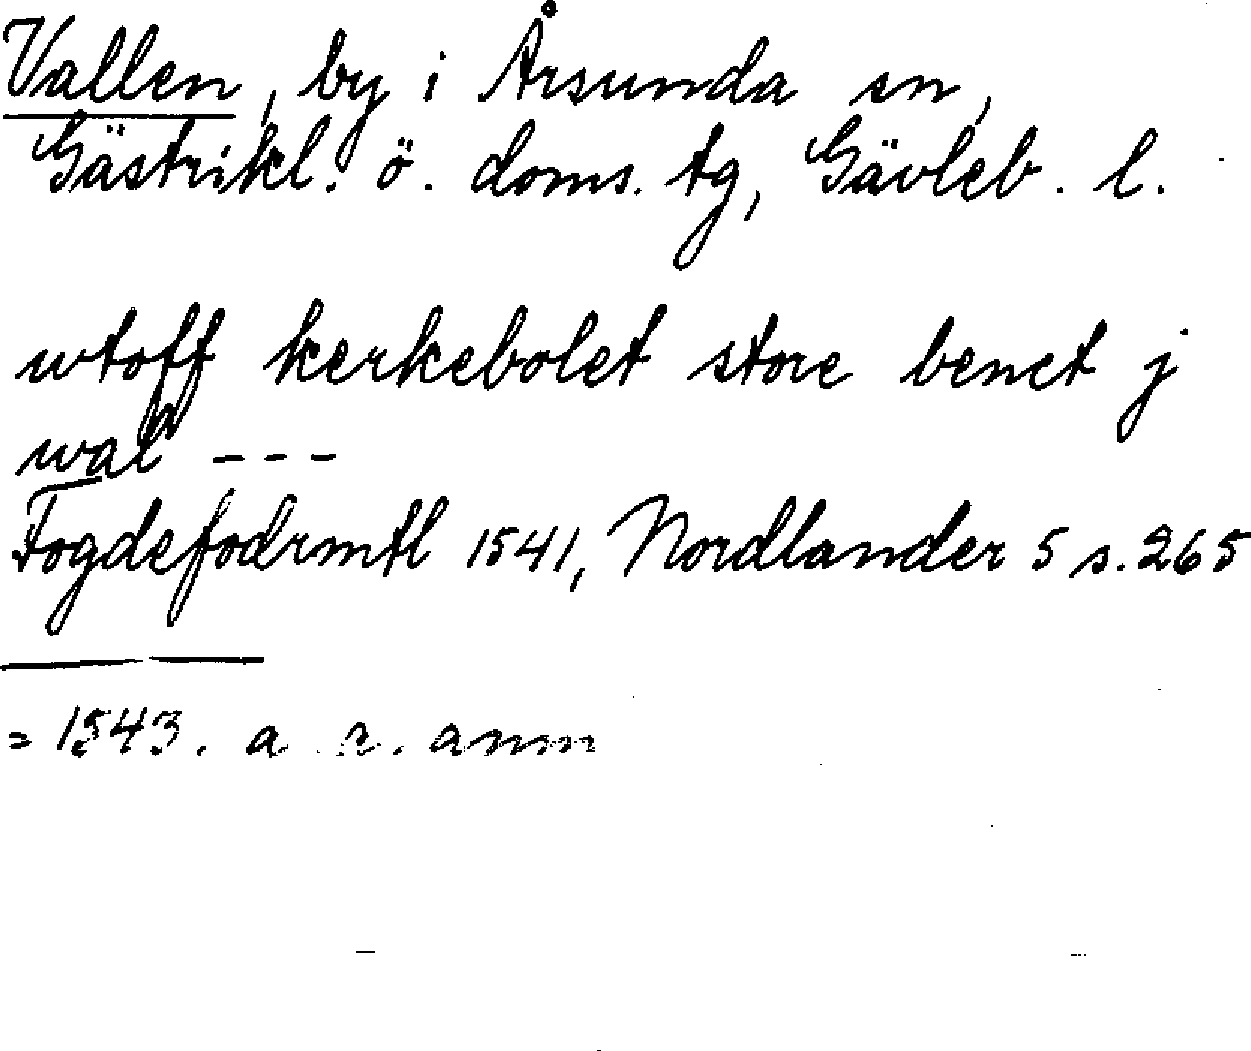 Vallen, by i Årsunda sn,
Gästrikl. ö. doms. tg, Gävleb. l.
wtoff kerkebolet store benct j
wal ---
Fogdefodrmtl 1541, Nordlander 5 s. 265
= 1543. a anm